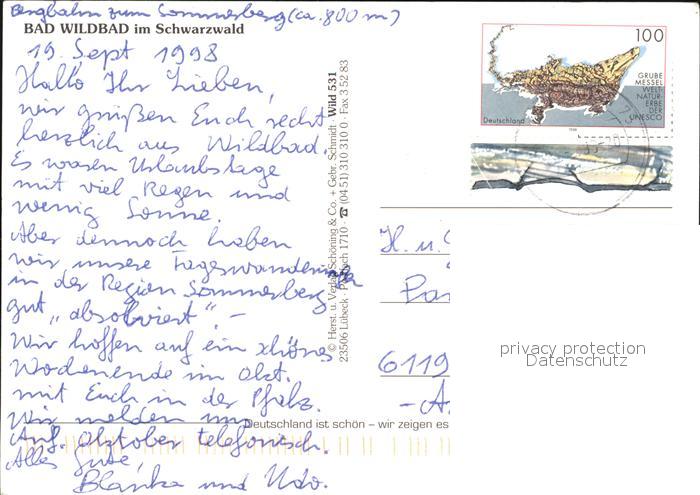 Bergbahn zum Sommerberg (ca. 800 m)
BAD WILDBAD im Schwarzwald
19. Sept 1998
Hallo Ihr Lieben,
wir grüßen Euch recht
herzlich aus Wildbad.
Es waren Urlaubstage
mit viel Regen und
wenig Sonne.
Aber dennoch haben
wir unsere Tageswanderungen
in der Region Sommerberg
gut „absolviert". –
Wir hoffen auf ein schönes
Wochenende im Okt.
mit Euch in der Pfalz.
Wir melden uns
Anf. Oktober telefonisch.
Alles Gute,
Blanka und Udo.
© Herst. u. Verlag Schöning & Co. + Gebr. Schmidt · Wild 531
23506 Lübeck · Postfach 1710 · ☎ (04 51) 310 310 0 · Fax 3 52 83
Deutschland ist schön – wir zeigen es
100
GRUBE
MESSEL
WELT-
NATUR-
ERBE
DER
UNESCO
Deutschland
1998
H. u.
6119
privacy protection
Datenschutz